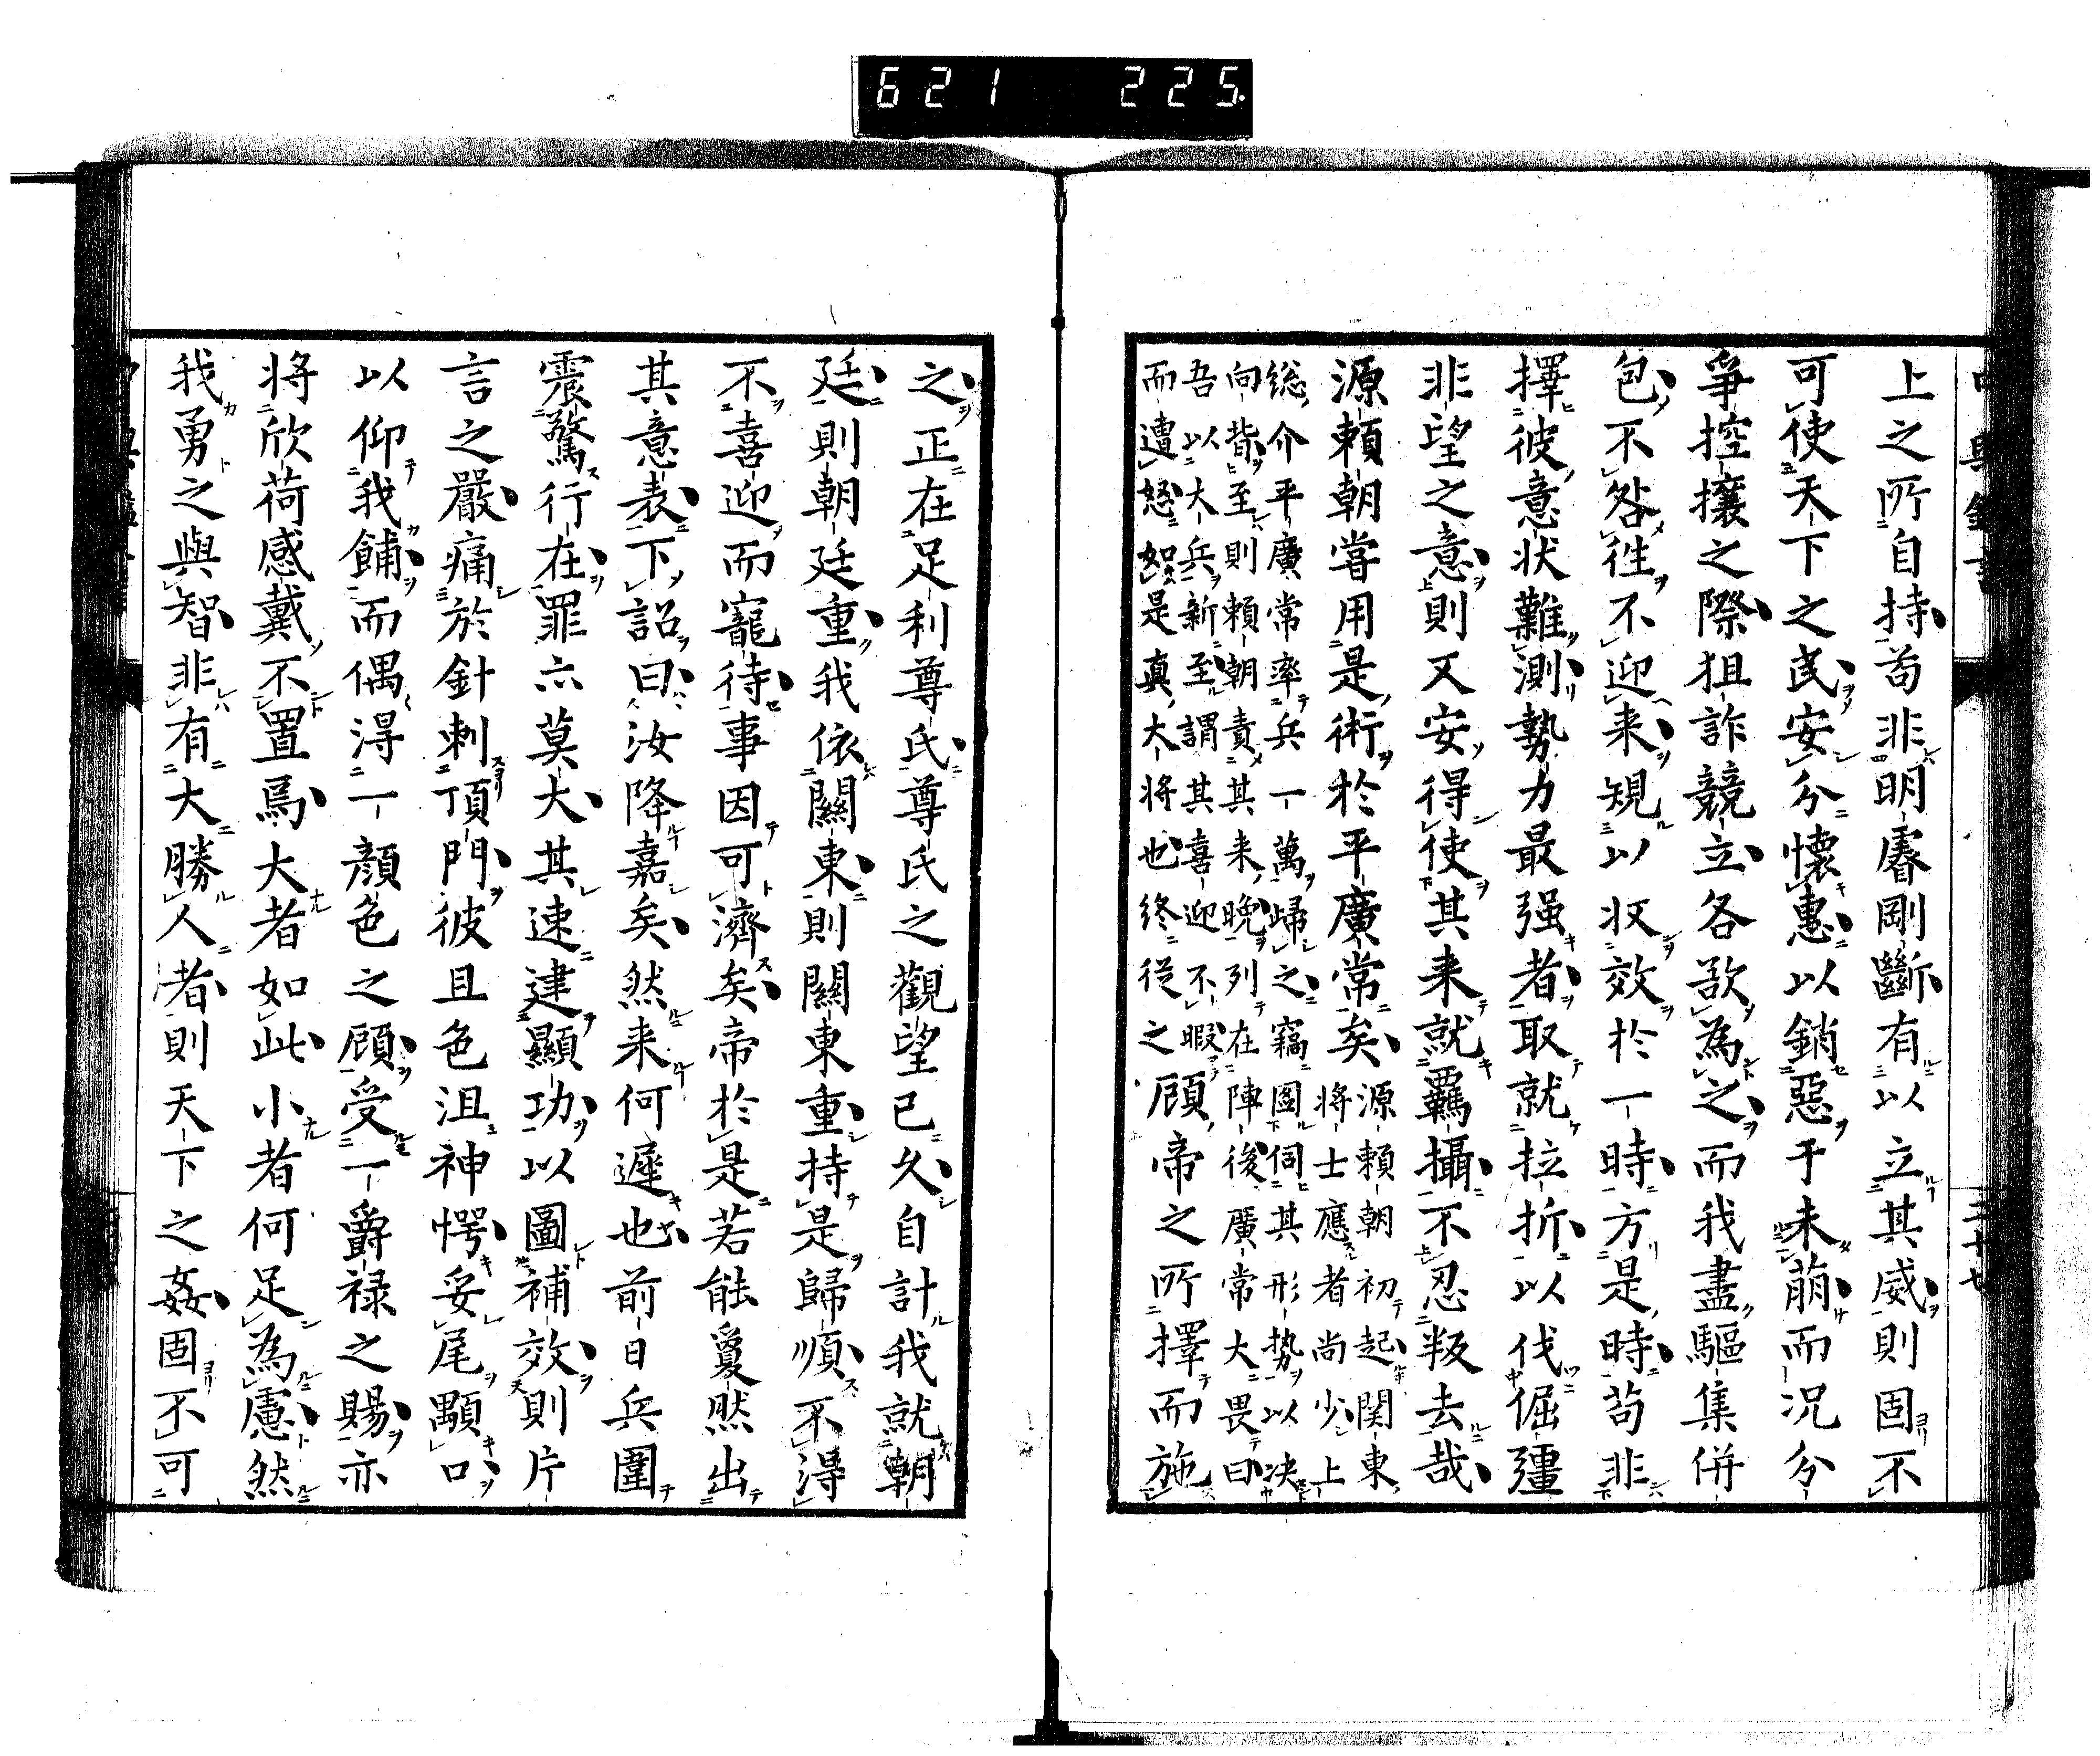 621 225
上之所自持苟非明睿剛斷有以立其威則固不
可使天下之民安分懷惠以銷惡于未萌而況分
爭控攘之際狙詐競立各欲為之而我盡驅集併
包不咎徃不迎来規以収效於一時方是時苟非
擇彼意状難測勢力最强者取就拉折以伐倔彊
非望之意則又安得使其来就羈攝不忍叛去哉
源頼朝嘗用是術於平廣常矣
源頼朝初起関東
将士應者尚少上
総介平廣常率兵一萬歸之竊圖伺其形勢以决
向背至則頼朝責其来晩列在陣後廣常大畏曰
吾以大兵新至謂其喜迎不暇
而遭怒如是真大将也終従之
顧帝之所擇而施
之正在足利尊氏尊氏之觀望已久自計我就朝
廷則朝廷重我依關東則關東重持是歸順不得
不喜迎而寵待事因可濟矣帝於是若能敻然出
其意表下詔曰汝降嘉矣然来何遲也前日兵圍
震驚行在罪亦莫大其速建顯功以圖補效則片
言之嚴痛於針刺頂門彼且色沮神愕妥尾顒口
以仰我餔而偶得一顔色之顧受一爵禄之賜亦
将欣荷感戴不置焉大者如此小者何足為慮然
我勇之與智非有大勝人者則天下之姦固不可